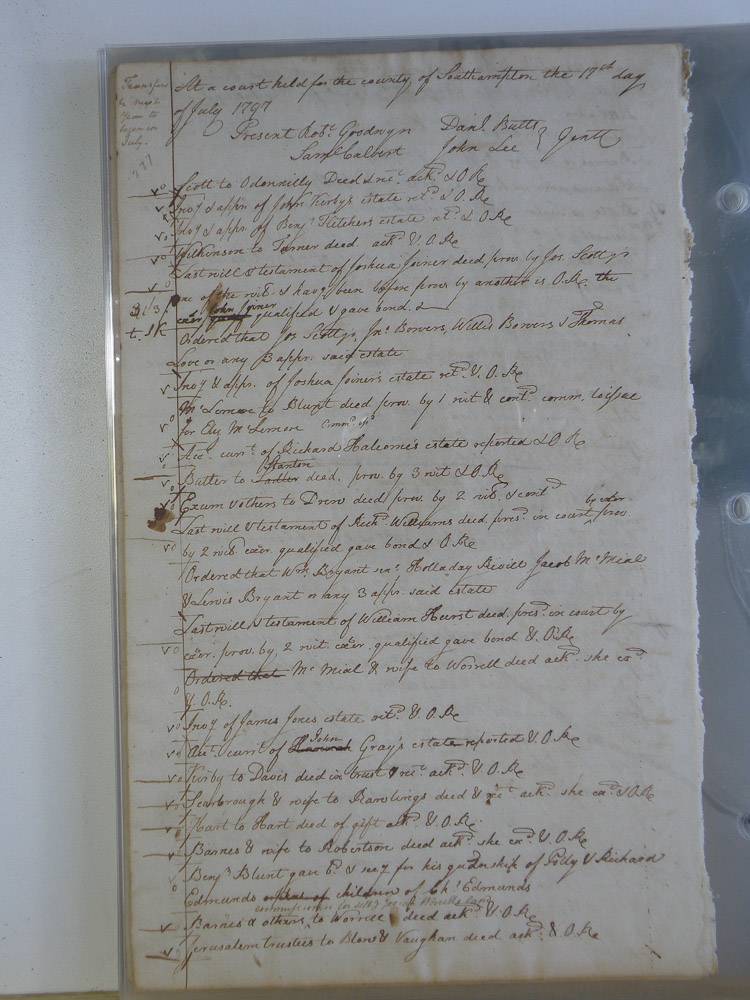 Transfers
to next
year to
begin in
July.
1797
At a court held for the county of Southampton the 17th day
of July 1797
Present Robt. Goodwyn Danl. Butts } Gentt
Saml Calvert John Lee
Scott to Odonnilly Deed & rect. ackd. & O.Re
Invy & appr. of John Kirbys estate retd. & O.Re
Invy & appr. of Benjn. Kitchers estate retd. & O.Re
Wilkinson to Turner deed ackd. & O.Re
Last will & testament of Joshua Joiner deed. prov. by Jos. Scott jr
one of the wits. & havg been before prov. by another is O.Re the
exer John Joiner qualified & gave bond. &
Ordered that Jos Scott jr, Jno. Bowers, Willis Bowers & Thomas
Love or any 3 appr. said estate
Invy & appr. of Joshua Joiner's estate retd. & O.Re
McLemore to Blunt deed prov. by 1 wit & contd. comm. to issue
for Eliz McLemore
Acct. currt. of Richard Halcome's estate reported & O Re
Butter to Ladler Stanton deed. prov. by 3 wit & O.Re
Exum & others to Drew deed prov. by 2 wits. & contd
Last will & testament of Richd. Williams deed. presd. in court by exer. prov
by 2 wits exer. qualified gave bond & O.Re
Ordered that Wm. Bryant senr. Holladay Revill Jacob McMial
& Lewis Bryant or any 3 appr. said estate
Last will & testament of William Hurst deed. presd. in court by
exer. prov. by 2 wit. exer. qualified gave bond & O.Re
Ordered that McMial & wife to Worrell deed ackd. she exd.
& O.Re.
Invy of James Jones estate retd. & O.Re
Acct. currt. of Hannah John Gray's estate reported & O.Re
Kirby to Davis deed in trust & rect. ackd. & O.Re
Scarbrough & wife to Rawlings deed & rect. ackd. she exd. & O.Re
Hart to Hart deed of gift ackd. & O.Re
Barnes & wife to Robertson deed ackd. she exd. & O.Re
Benjn. Blunt gave bd. & secy for his gudnship of Polly & Richard
Edmunds children of Chs. Edmunds
Barnes & others to Worrell deed ackd. & O.Re
Jerusalem trustees to Blow & Vaughan deed ackd. & O.Re